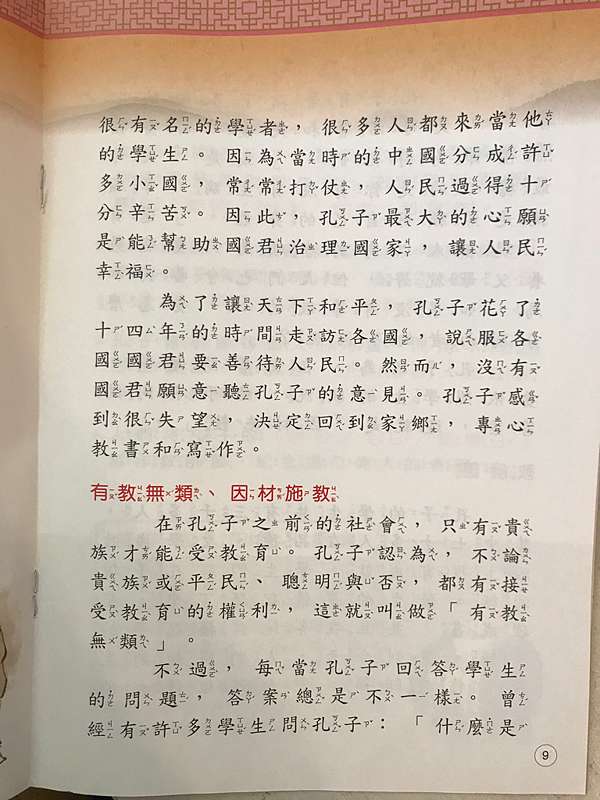 很有名的學者，很多人都來當他
的學生。因為當時的中國分成許
多小國，常常打仗，人民過得十
分辛苦。因此，孔子最大的心願
是能幫助國君治理國家，讓人民
幸福。
為了讓天下和平，孔子花了
十四年的時間走訪各國，說服各
國國君要善待人民。然而，沒有
國君願意聽孔子的意見。孔子感
到很失望，決定回到家鄉，專心
教書和寫作。
有教無類、因材施教
在孔子之前的社會，只有貴
族才能受教育。孔子認為，不論
貴族或平民、聰明與否，都有接
受教育的權利，這就叫做「有教
無類」。
不過，每當孔子回答學生
的問題，答案總是不一樣。曾
經有許多學生問孔子：「什麼是
9